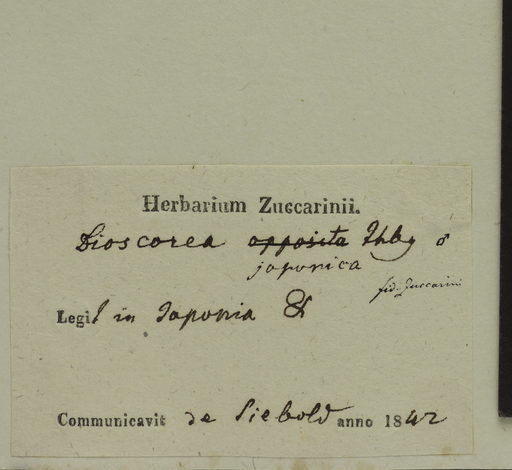 Herbarium Zuccarinii.
Dioscorea opposita Thbg ♂
japonica
fid. Zuccarini
Legit in Japonia
Communicavit de Siebold anno 1842